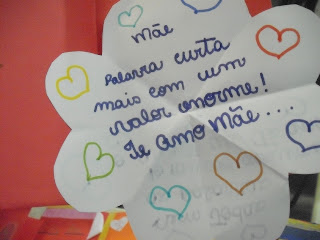 mãe
Palavra curta
mais com um
valor enorme!
Te amo Mãe....